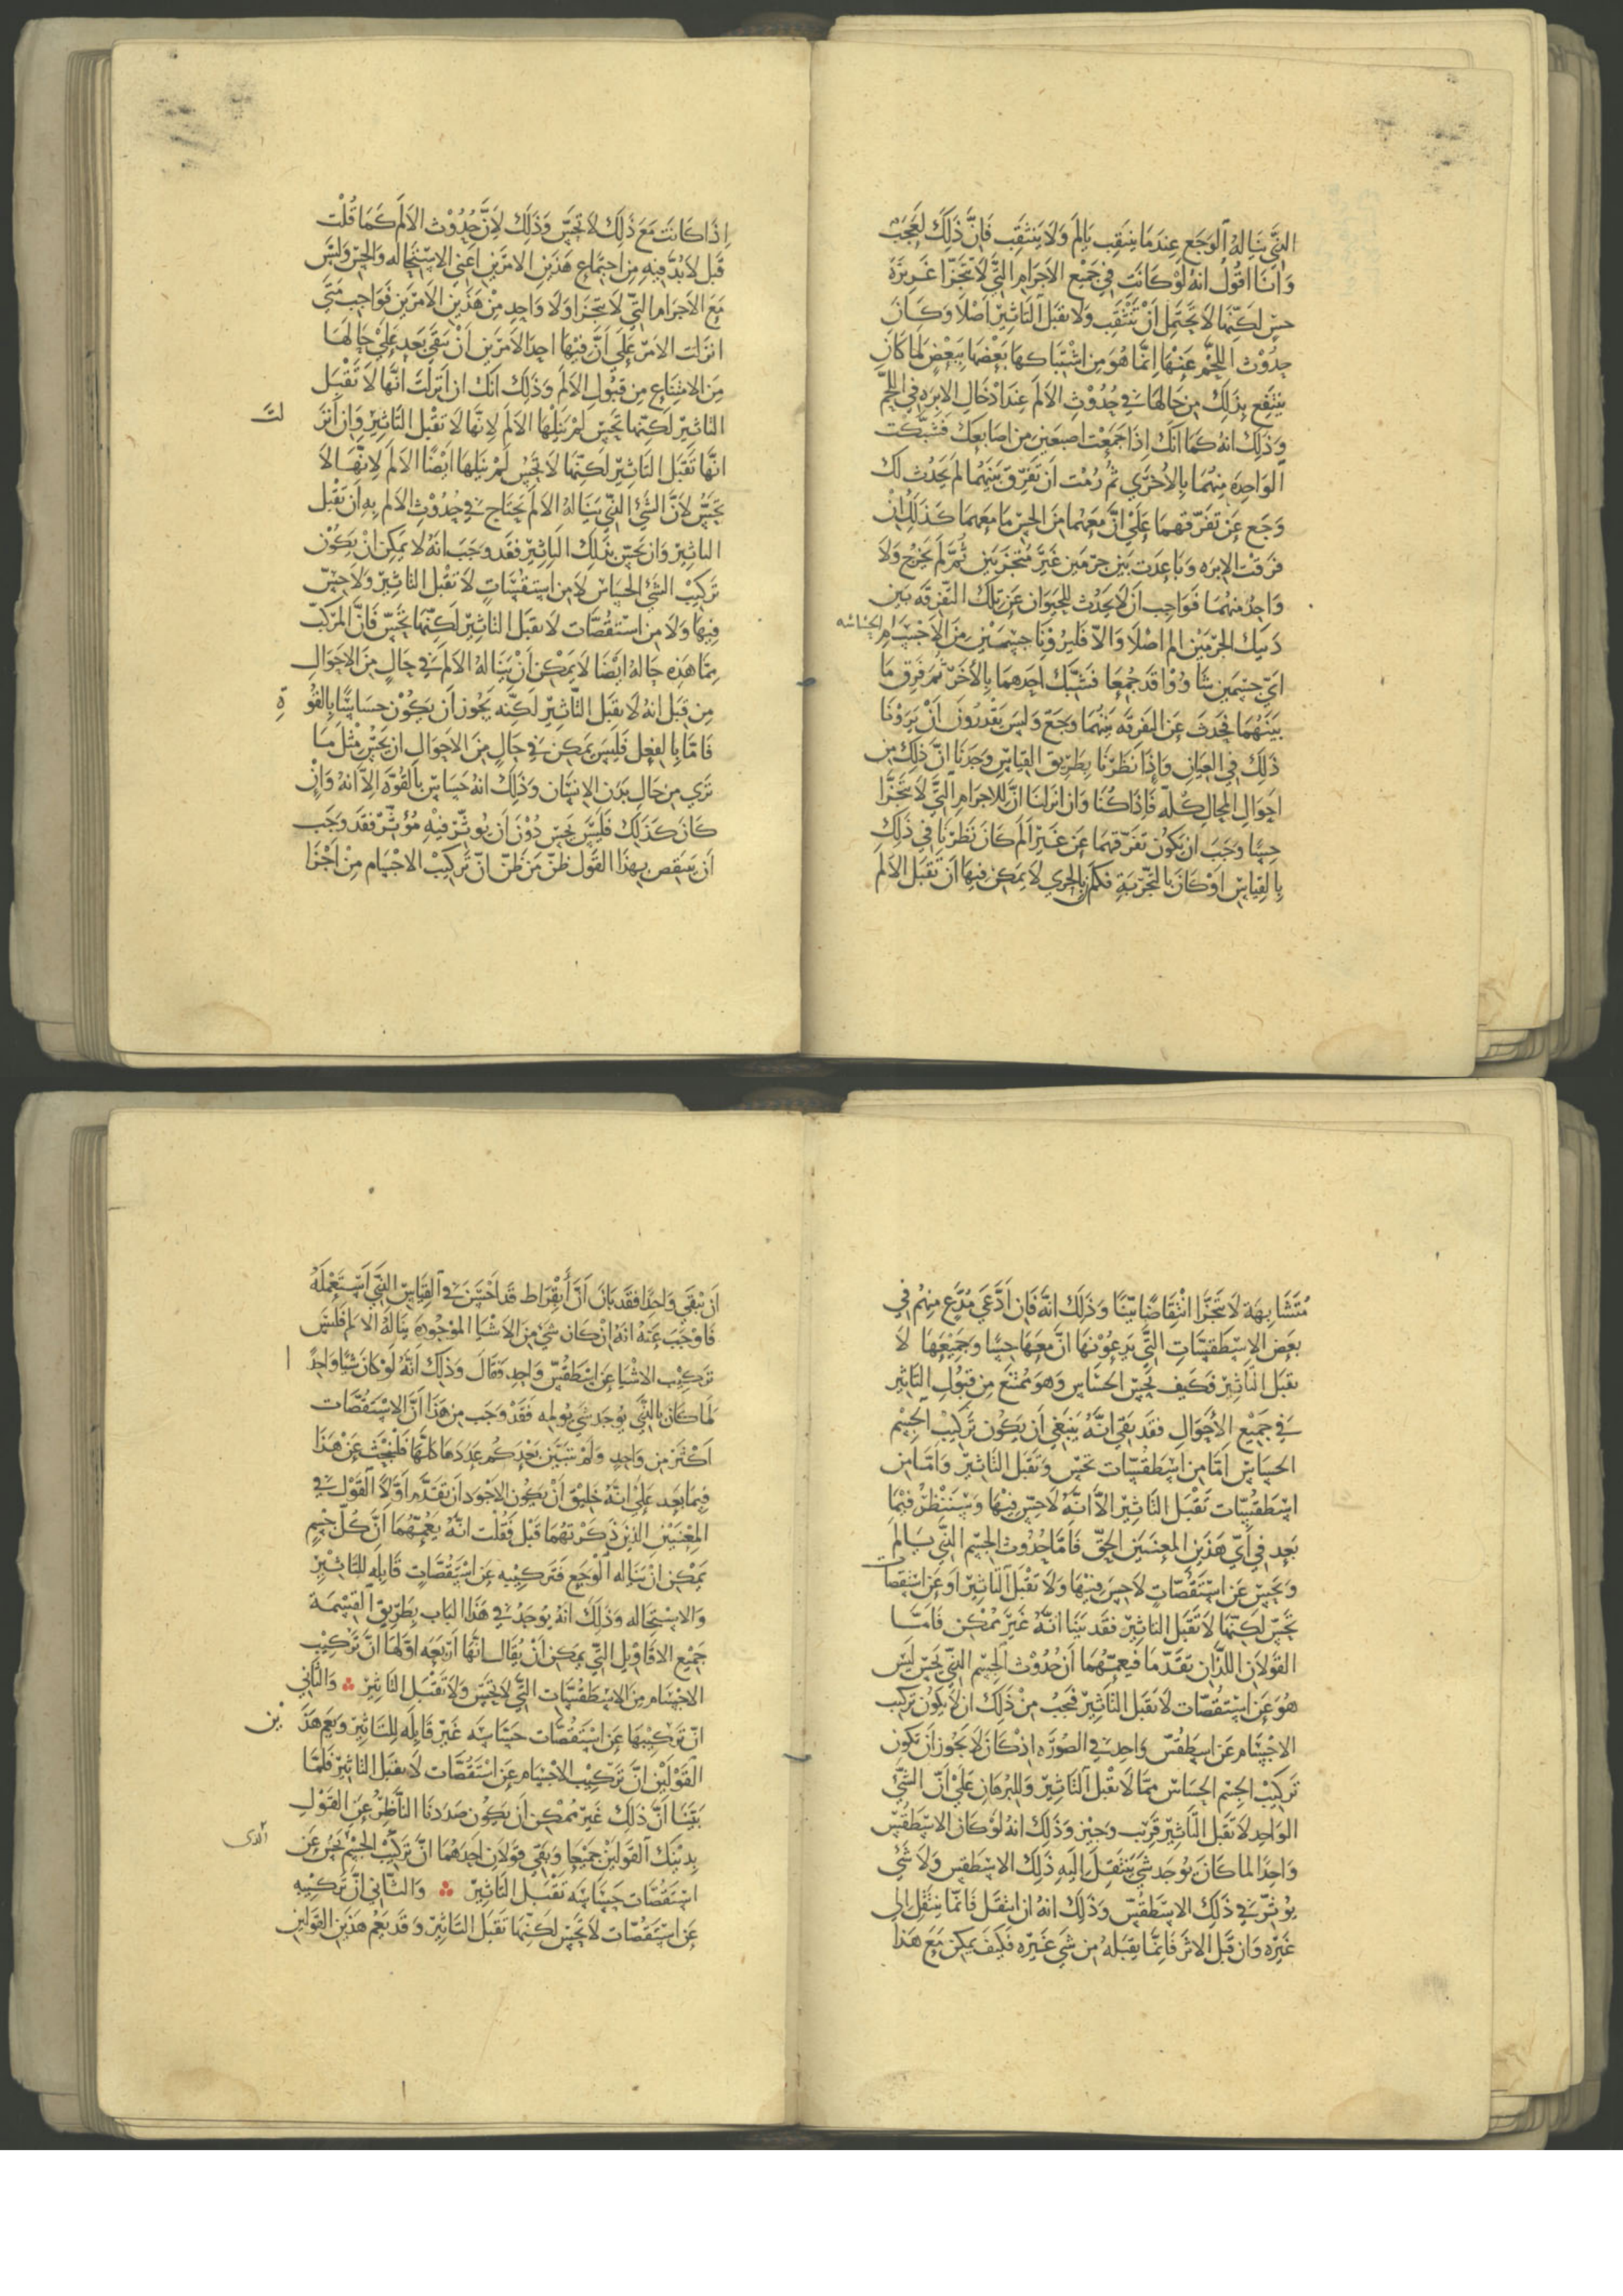 الذي يناله الوجع عندما ينثقب يالم ولا ينثقب فان ذلك لعجب
وانا اقول انه لو كانت في جميع الاجرام التي لا تتجزا غريزة
حس لكنها لا تحتمل ان تنثقب ولا تقبل التاثير اصلا وكان
حدوث اللحم عنها انما هو من اشتباكها بعضها ببعض لما كان
ينتفع بذلك من حالها في حدوث الالم عند ادخال الابره في اللحم
وذلك انه كما انك اذا جمعت اصبعين من اصابعك فشبكت
الواحدة منهما بالاخري ثم رمت ان تفرق بينهما لم يحدث لك
وجع عن تفرقهما علي ان معهما من الحس ما معهما كذلك ان
فرقت الابره وباعدت بين جرمين غير متجزيين ثم لم يخرج ولا
واحد منهما فواجب ان لا يحدث للحيوان عن تلك التفرقه بين
ذينك الجرمين الم اصلا والا فليرونا جسمين من الاجسام الحساسه
اي جسمين شاووا قد جمعا فشبك احدهما بالاخر ثم فرق ما
بينهما فحدث عن التفرقه بينهما وجع وليس يقدرون ان يرونا
ذلك في العيان واذا نظرنا بطريق القياس وجدنا ان ذلك من
احوال المحال كله فاذا كنا وان انزلنا ان للاجرام التي لا تتجزا
حسا وجب ان تكون تفرقهما عن غير الم كان نظرنا في ذلك
بالقياس او كان بالتجربة فكم بالحري لا يمكن فيها ان تقبل الالم
اذا كانت مع ذلك لا تحس وذلك لان حدوث الالم كما قلت
قبل لا بد فيه من اجتماع هذين الامرين اعني الاستحاله والحس وليس
مع الاجرام التي لا تتجزا ولا واحد من هذين الامرين فواجب متي
انزلت الامر علي ان فيها احد الامرين ان تبقي بعد علي حالها
من الامتناع من قبول الالم وذلك انك ان انزلت انها لا تقبل
التاثير لكنها تحس لم ينلها الالم لانها لا تقبل التاثير وان انزلت
انها تقبل التاثير لكنها لا تحس لم ينلها ايضا الالم لانها لا
تحس لان الشي الذي يناله الالم يحتاج في حدوث الالم به ان يقبل
التاثير وان يحس بذلك التاثير فقد وجب انه لا يمكن ان يكون
تركيب الشي الحساس لا من استقسات لا تقبل التاثير ولا حس
فيها ولا من استقصات لا تقبل التاثير لكنها تحس فان المركب
مما هذه حاله ايضا لا يمكن ان يناله الالم في حال من الاحوال
من قبل انه لا يقبل التاثير لكنه يجوز ان يكون حساسا بالقوة
فاما بالفعل فليس يمكن في حال من الاحوال ان يحس مثل ما
نري من حال بدن الانسان وذلك انه حساس بالقوة الا انه وان
كان كذلك فليس يحس دون ان يوثر فيه موثر فقد وجب
ان ينتقض بهذا القول ظن من ظن ان تركيب الاجسام من اجزا
متشابهة لا تتجزا انتقاضا بينا وذلك انه فان ادعي مدع منهم في
بعض الاسطقسات التي يدعونها ان معها حسا وجميعها لا
تقبل التاثير فكيف يحس الحساس وهو ممتنع من قبول التاثير
في جميع الاحوال فقد بقي انه ينبغي ان يكون تركيب الجسم
الحساس اما من اسطقسات تحس وتقبل التاثير واما من
اسطقسات تقبل التاثير الا انه لا حس فيها وسننظر فيما
بعد في اي هذين المعنيين الحق فاما حدوث الجسم الذي يالم
ويحس عن استقصات لا حس فيها ولا تقبل التاثير او عن استقصات
تحس لكنها لا تقبل التاثير فقد بينا انه غير ممكن فاما
القولان اللذان تقدما فيعمهما ان حدوث الجسم الذي يحس ليس
هو عن استقصات لا تقبل التاثير فيجب من ذلك ان لا يكون تركيب
الاجسام عن اسطقس واحد في الصورة اذ كان لا يجوز ان تكون
تركيب الجسم الحساس مما لا يقبل التاثير والبرهان علي ان الشي
الواحد لا يقبل التاثير قريب وجيز وذلك انه لو كان الاسطقس
واحدا لما كان يوجد شي ينتقل اليه ذلك الاسطقس ولا شي
يوثر في ذلك الاسطقس وذلك انه ان انتقل فانما ينتقل الي
غيره وان قبل الاثر فانما يقبله من شي غيره فكيف يمكن مع هذا
ان يبقي واحدا فقد بان ان أبقراط قد احسن في القياس الذي استعمله
فاوجب عنه انه ان كان شي من الاشيا الموجوده يناله الالم فليس
تركيب الاشيا عن اسطقس واحد فقال وذلك انه لو كان شيا واحدا
لما كان بالذي يوجد شي يولمه فقد وجب من هذا ان الاستقصات
اكثر من واحد ولم نتبين بعد كم عددها كلها فلنبحث عن هذا
فيما بعد علي انه خليق ان يكون الاجود ان نقدم اولا القول في
المعنيين الذين ذكرتهما قبل فقلت انه يعمهما ان كل جسم
يمكن ان يناله الوجع فتركيبه عن استقصات قابله للتاثير
والاستحاله وذلك انه يوجد في هذا الباب بطريق القسمة
جميع الاقاويل التي يمكن ان يقال انها اربعه اولها ان تركيب
الاجسام من الاسطقسات التي لا تحس ولا تقبل التاثير ∴ والثاني
ان تركيبها عن استقصات حساسه غير قابله للتاثير ويعم هذين
القولين ان تركيب الاجسام عن استقصات لا تقبل التاثير فلما
بينا ان ذلك غير ممكن ان يكون صددنا الناظر عن القول
بذينك القولين جميعا وبقي قولان احدهما ان تركيب الجسم الذي يحس عن
استقصات حساسه تقبل التاثير ∴ والثاني ان تركيبه
عن استقصات لا تحس لكنها تقبل التاثير وقد يعم هذين القولين